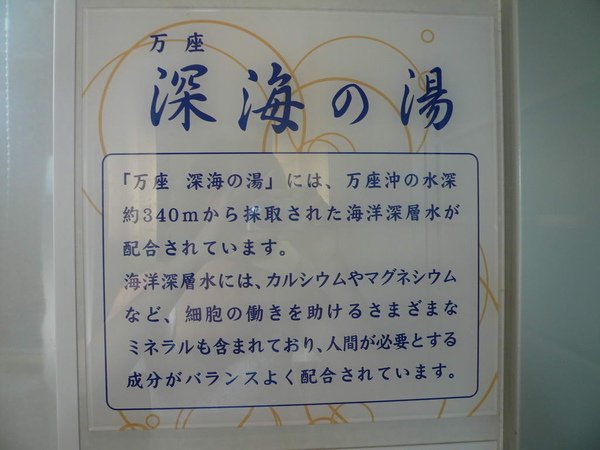 万座
深海の湯
「万座 深海の湯」には、万座沖の水深
約340mから採取された海洋深層水が
配合されています。
海洋深層水には、カルシウムやマグネシウム
など、細胞の働きを助けるさまざまな
ミネラルも含まれており、人間が必要とする
成分がバランスよく配合されています。